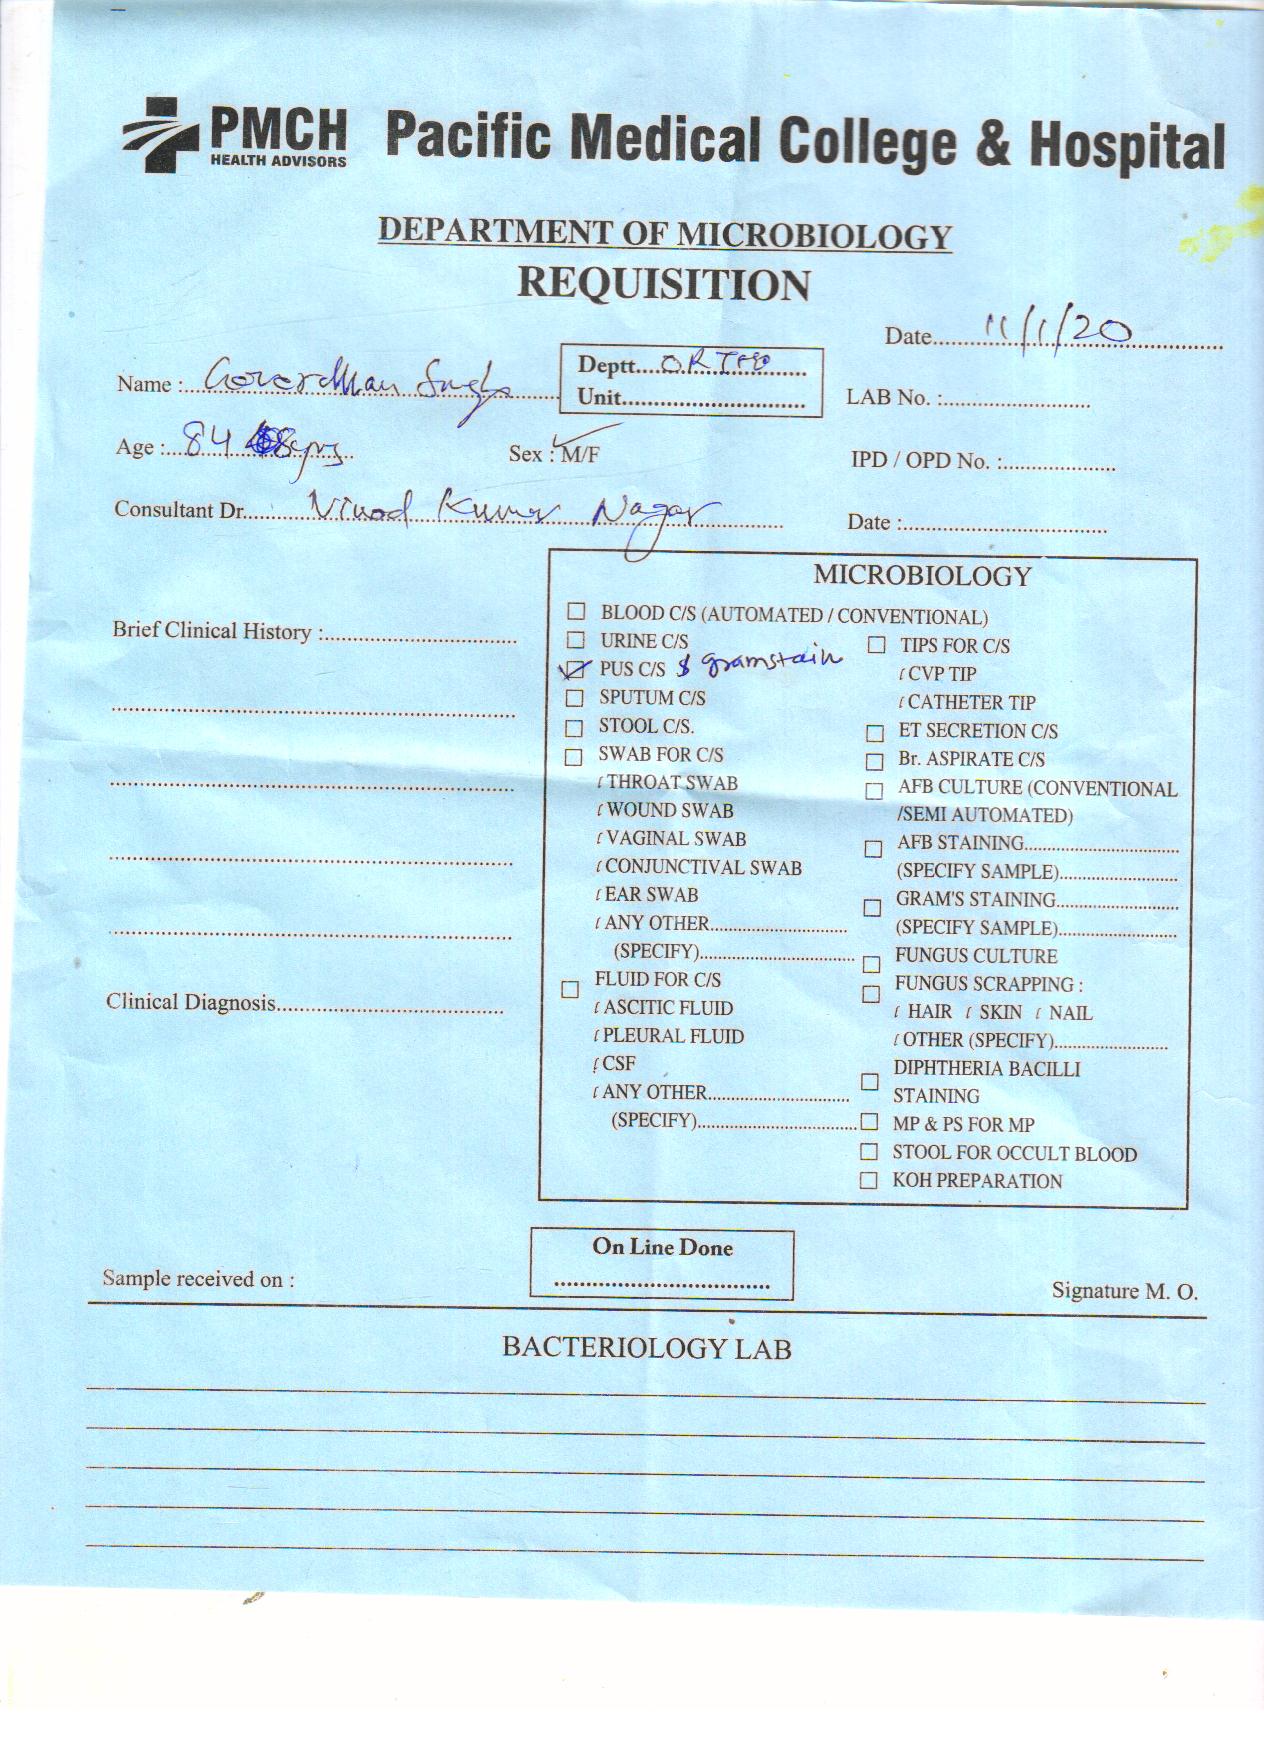 PMCH Pacific Medical College & Hospital
HEALTH ADVISORS
DEPARTMENT OF MICROBIOLOGY
REQUISITION
Date 11/1/20
Name : Goverdhan Singh
Deptt. ORTHO
Unit
LAB No. :
Age : 84 yrs
Sex : M/F
IPD / OPD No. :
Consultant Dr. Vinod Kumar Nagar
Date :
Brief Clinical History :
Clinical Diagnosis
MICROBIOLOGY
BLOOD C/S (AUTOMATED / CONVENTIONAL)
URINE C/S
PUS C/S & gramstain
SPUTUM C/S
STOOL C/S.
SWAB FOR C/S
THROAT SWAB
WOUND SWAB
VAGINAL SWAB
CONJUNCTIVAL SWAB
EAR SWAB
ANY OTHER
(SPECIFY)
FLUID FOR C/S
ASCITIC FLUID
PLEURAL FLUID
CSF
ANY OTHER
(SPECIFY)
TIPS FOR C/S
CVP TIP
CATHETER TIP
ET SECRETION C/S
Br. ASPIRATE C/S
AFB CULTURE (CONVENTIONAL
/SEMI AUTOMATED)
AFB STAINING
(SPECIFY SAMPLE)
GRAM'S STAINING
(SPECIFY SAMPLE)
FUNGUS CULTURE
FUNGUS SCRAPPING :
HAIR SKIN NAIL
OTHER (SPECIFY)
DIPHTHERIA BACILLI
STAINING
MP & PS FOR MP
STOOL FOR OCCULT BLOOD
KOH PREPARATION
On Line Done
Sample received on :
Signature M. O.
BACTERIOLOGY LAB